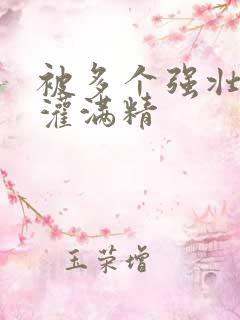 被多个强壮
灌满精
玉荣增